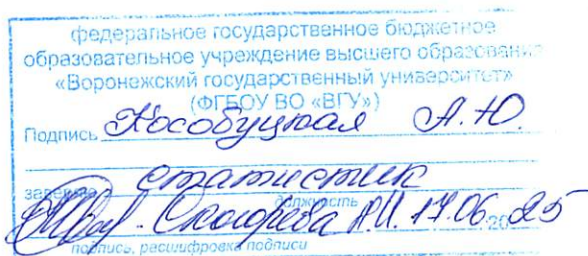 федеральное государственное бюджетное
образовательное учреждение высшего образования
«Воронежский государственный университет»
(ФГБОУ ВО «ВГУ»)
Подпись Кособуцкая А.Ю.
заверяю статистик
должность
17.06.2025
подпись, расшифровка подписи